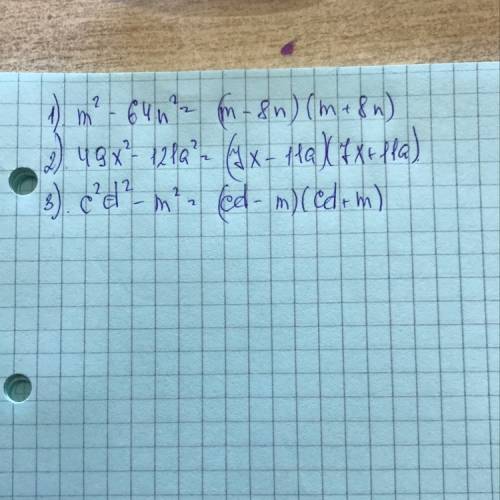 1) m² - 64n² = (m - 8n)(m + 8n)
2) 49x² - 121a² = (7x - 11a)(7x + 11a)
3). c²d² - m² = (cd - m)(cd + m)